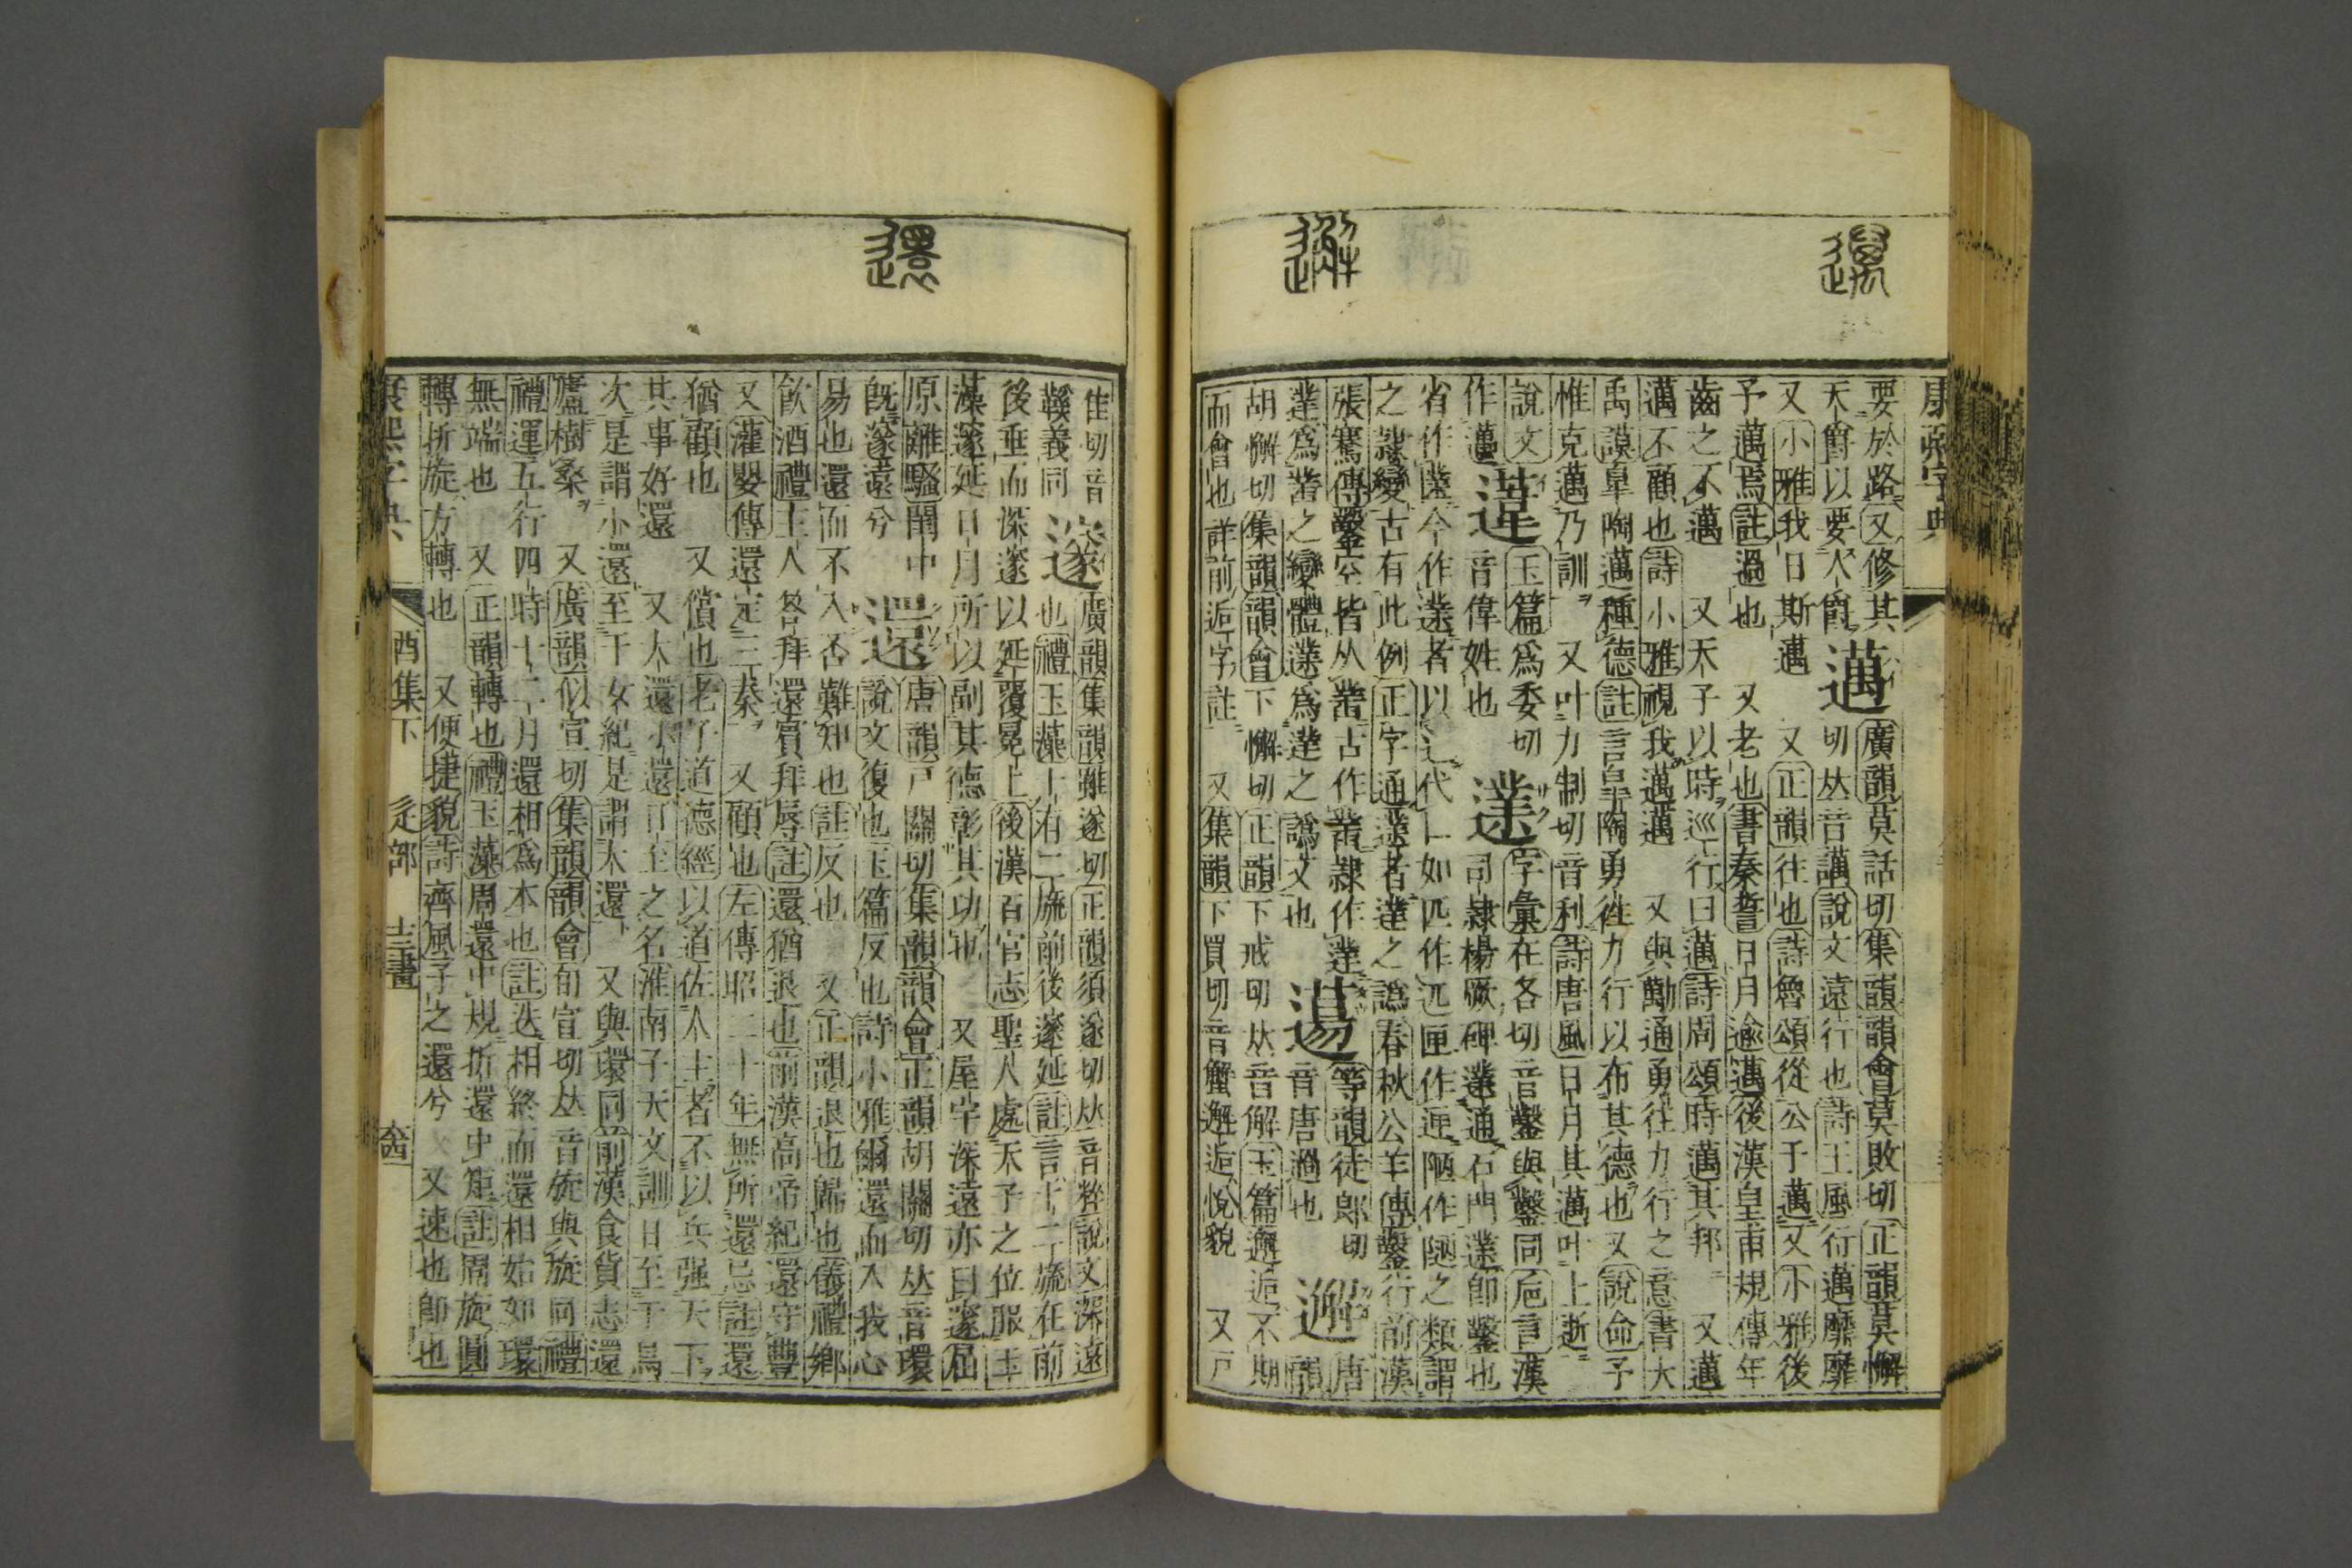 康熙字典
邁
邂
要於路又修其邁廣韻莫話切集韻韻會莫敗切正韻莫懈
天爵以要人爵切𠀤音講說文遠行也詩王風行邁靡靡
又小雅我日斯邁又正韻往也詩魯頌從公于邁又小雅後
予邁焉註過也又老也書秦誓日月逾邁後漢皇甫規傳年
齒之不邁又天子以時巡行曰邁詩周頌時邁其邦又邁
邁不顧也詩小雅視我邁邁又與勱通勇往力行之意書大
禹謨皐陶邁種德註言皐陶勇往力行以布其德也又說命予
惟克邁乃訓又叶力制切音利詩唐風日月其邁叶上逝
說文薳玉篇爲委切字彙在各切音鑿與鑿同巵言漢
作音偉姓也司隷楊厥碑通石門卽鑿也
省作今作者以辶代如匹作匣作陋作之類謂
之隷變古有此例正字通者達之譌春秋公羊傳鑿行前漢
張騫傳鑿空皆从丵古作叢隷作達逿等韻徒郎切邂唐
爲之變體爲達之譌文也音唐過也韻
胡懈切集韻韻會下懈切正韻下戒切𠀤音解玉篇邂逅不期
而會也詳前逅字註又集韻下買切音蟹邂逅悅貌又戸
還
隹切音邃廣韻集韻雖遂切正韻須遂切𠀤音粹說文深遠
義同也禮玉藻十有二旒前後邃延註言十二旒在前
後垂而深邃以延覆冕上後漢百官志聖人處天子之位服玉
藻邃延日月所以副其德彰其功也又屋宇深遠亦曰邃屈
原離騷閨中還唐韻戸關切集韻韻會正韻胡關切𠀤音環
旣邃遠兮說文復也玉篇反也詩小雅爾還而入我心
易也還而不入否難知也註反也又正韻退也歸也儀禮鄉
飮酒禮主人答拜還賓拜辱註還猶退也前漢高帝紀還守豐
又灌嬰傳還定三秦又顧也左傳昭二十年無所還忌註還
猶顧也又償也老子道德經以道佐人主者不以兵强天下
其事好還又大還小還日至之名淮南子天文訓日至于鳥
次是謂小還至于女紀是謂大還又與環同前漢食貨志還
廬樹桑又廣韻似宣切集韻韻會旬宣切𠀤音旋與旋同禮
禮運五行四時十二月還相爲本也註迭相終而還相始如環
無端也又正韻轉也禮玉藻周還中規折還中矩註周旋圓
轉折旋方轉也又便捷貌詩齊風子之還兮又速也卽也
康熙字典
酉集下
辵部
十三畫
六四